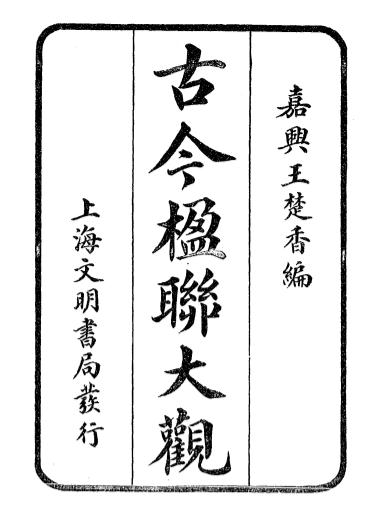 嘉興王楚香編
古今楹聯大觀
上海文明書局發行